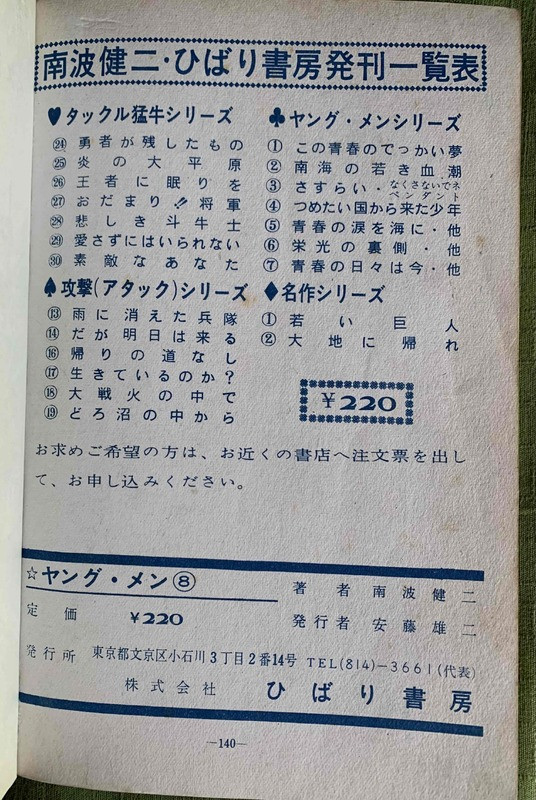 南波健二・ひばり書房発刊一覧表
♥タックル猛牛シリーズ
㉔ 勇者が残したもの
㉕ 炎の大平原
㉖ 王者に眠りを
㉗ おだまり!!将軍
㉘ 悲しき斗牛士
㉙ 愛さずにはいられない
㉚ 素敵なあなた
♠攻撃(アタック)シリーズ
⑬ 雨に消えた兵隊
⑭ だが明日は来る
⑯ 帰りの道なし
⑰ 生きているのか?
⑱ 大戦火の中で
⑲ どろ沼の中から
♣ヤング・メンシリーズ
① この青春のでっかい夢
② 南海の若き血潮
③ さすらい・なくさないでネペンダント
④ つめたい国から来た少年
⑤ 青春の涙を海に・他
⑥ 栄光の裏側・他
⑦ 青春の日々は今・他
♦名作シリーズ
① 若い巨人
② 大地に帰れ
¥220
お求めご希望の方は、お近くの書店へ注文票を出し
て、お申し込みください。
☆ヤング・メン⑧
定価 ¥220
著者 南波健二
発行者 安藤雄二
発行所 東京都文京区小石川3丁目2番14号 TEL(814)−3661(代表)
株式会社 ひばり書房
—140—